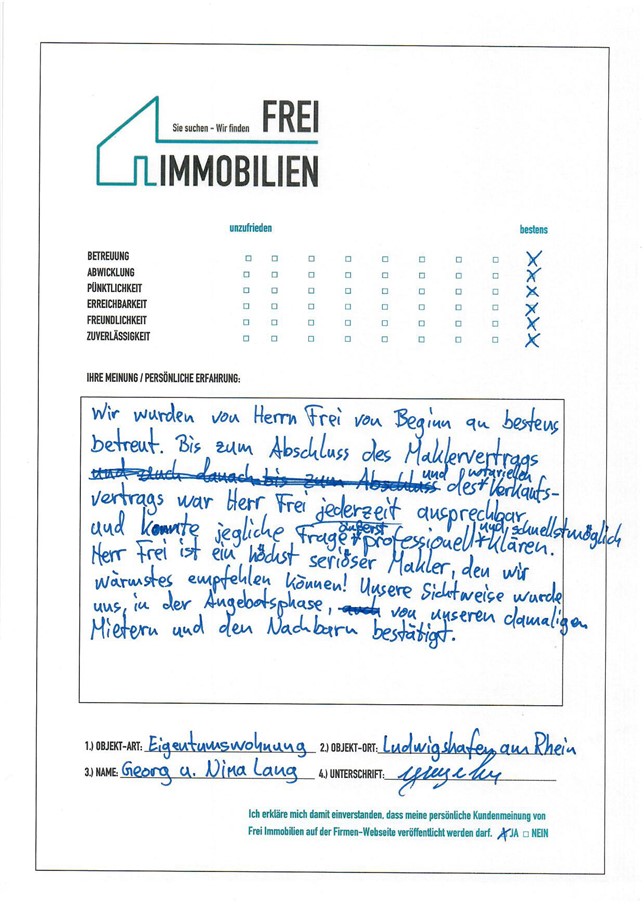 Sie suchen - Wir finden FREI
IMMOBILIEN
unzufrieden bestens
BETREUUNG
ABWICKLUNG
PÜNKTLICHKEIT
ERREICHBARKEIT
FREUNDLICHKEIT
ZUVERLÄSSIGKEIT
IHRE MEINUNG / PERSÖNLICHE ERFAHRUNG:
Wir wurden von Herrn Frei von Beginn an bestens
betreut. Bis zum Abschluss des Maklervertrags
und auch danach bis zum Abschluss und des notariellen Verkaufs-
vertrags war Herr Frei jederzeit ansprechbar
und konnte jegliche Frage äußerst professionell und schnellstmöglich klären.
Herr Frei ist ein höchst seriöser Makler, den wir
wärmstes empfehlen können! Unsere Sichtweise wurde
uns, in der Angebotsphase, auch von unseren damaligen
Mietern und den Nachbarn bestätigt.
1.) OBJEKT-ART: Eigentumswohnung 2.) OBJEKT-ORT: Ludwigshafen am Rhein
3.) NAME: Georg u. Nina Lang 4.) UNTERSCHRIFT:
Ich erkläre mich damit einverstanden, dass meine persönliche Kundenmeinung von
Frei Immobilien auf der Firmen-Webseite veröffentlicht werden darf. JA NEIN